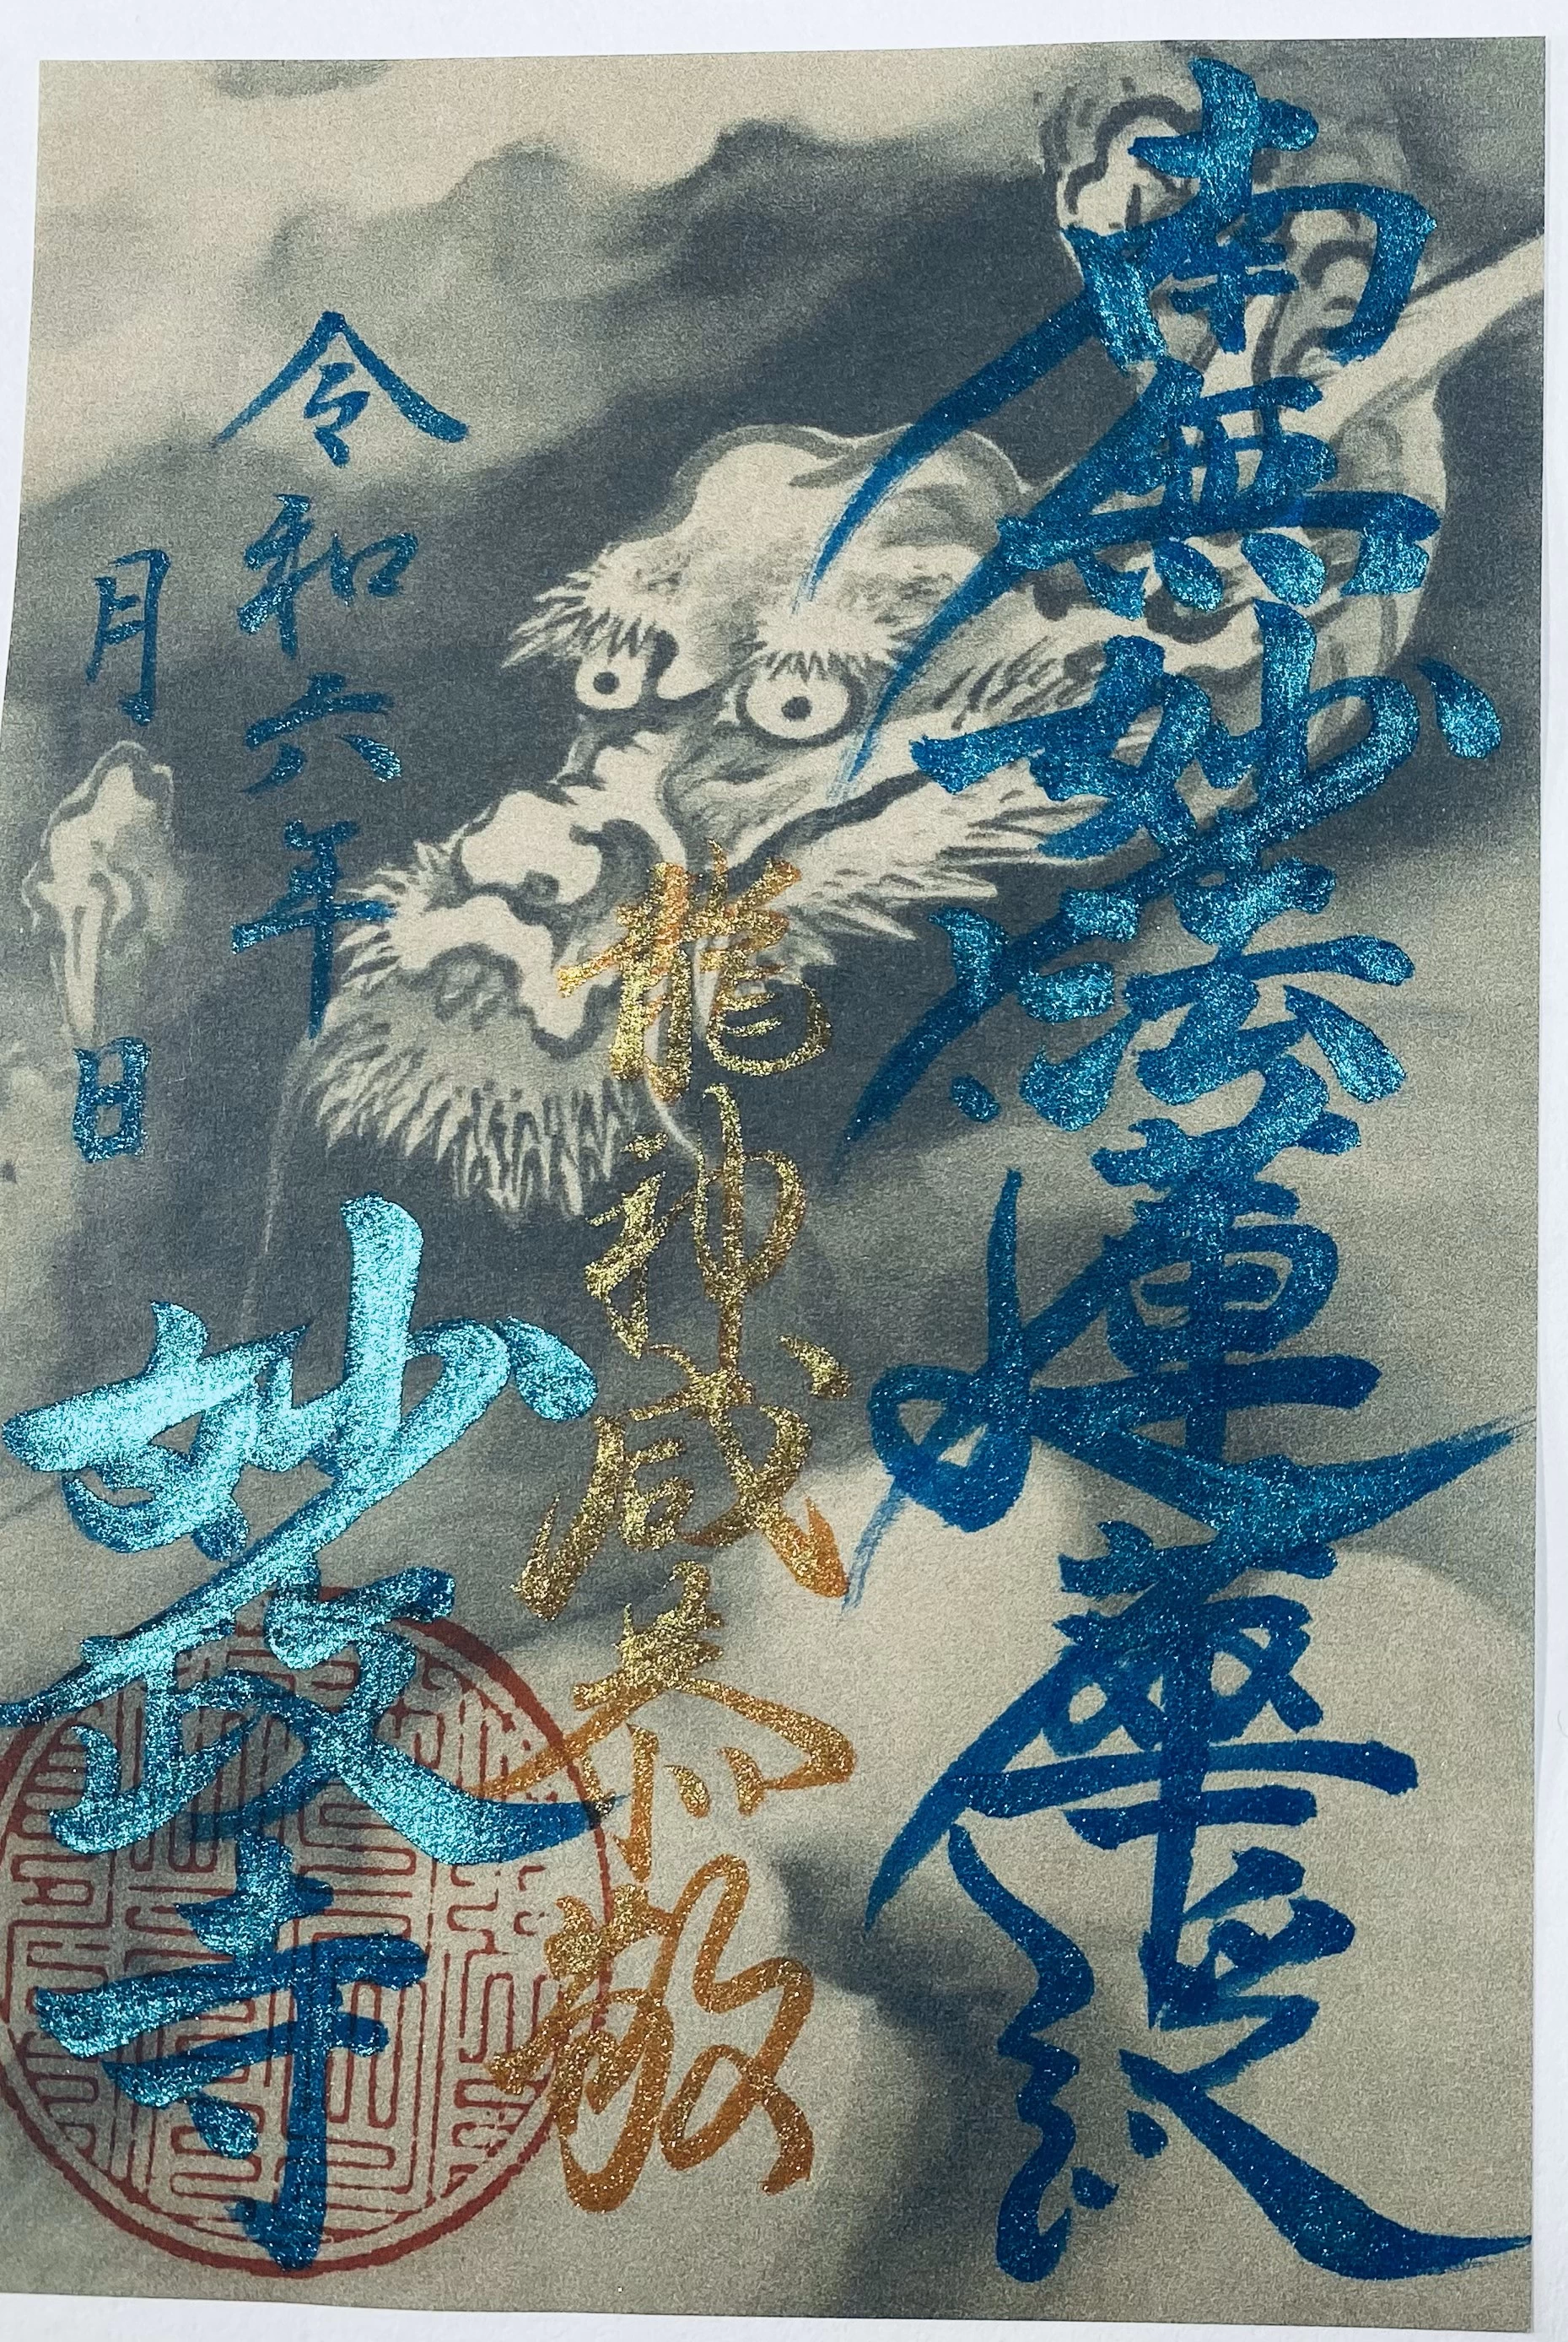 南無妙法蓮華経
龍神咸恭敬
令和六年
月 日
妙政寺